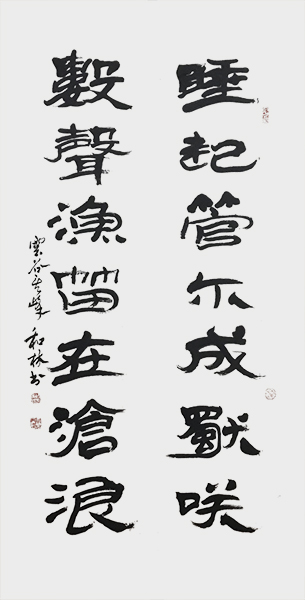 睡起管尓成獨咲
數聲漁笛在滄浪
雲谷峰和林书